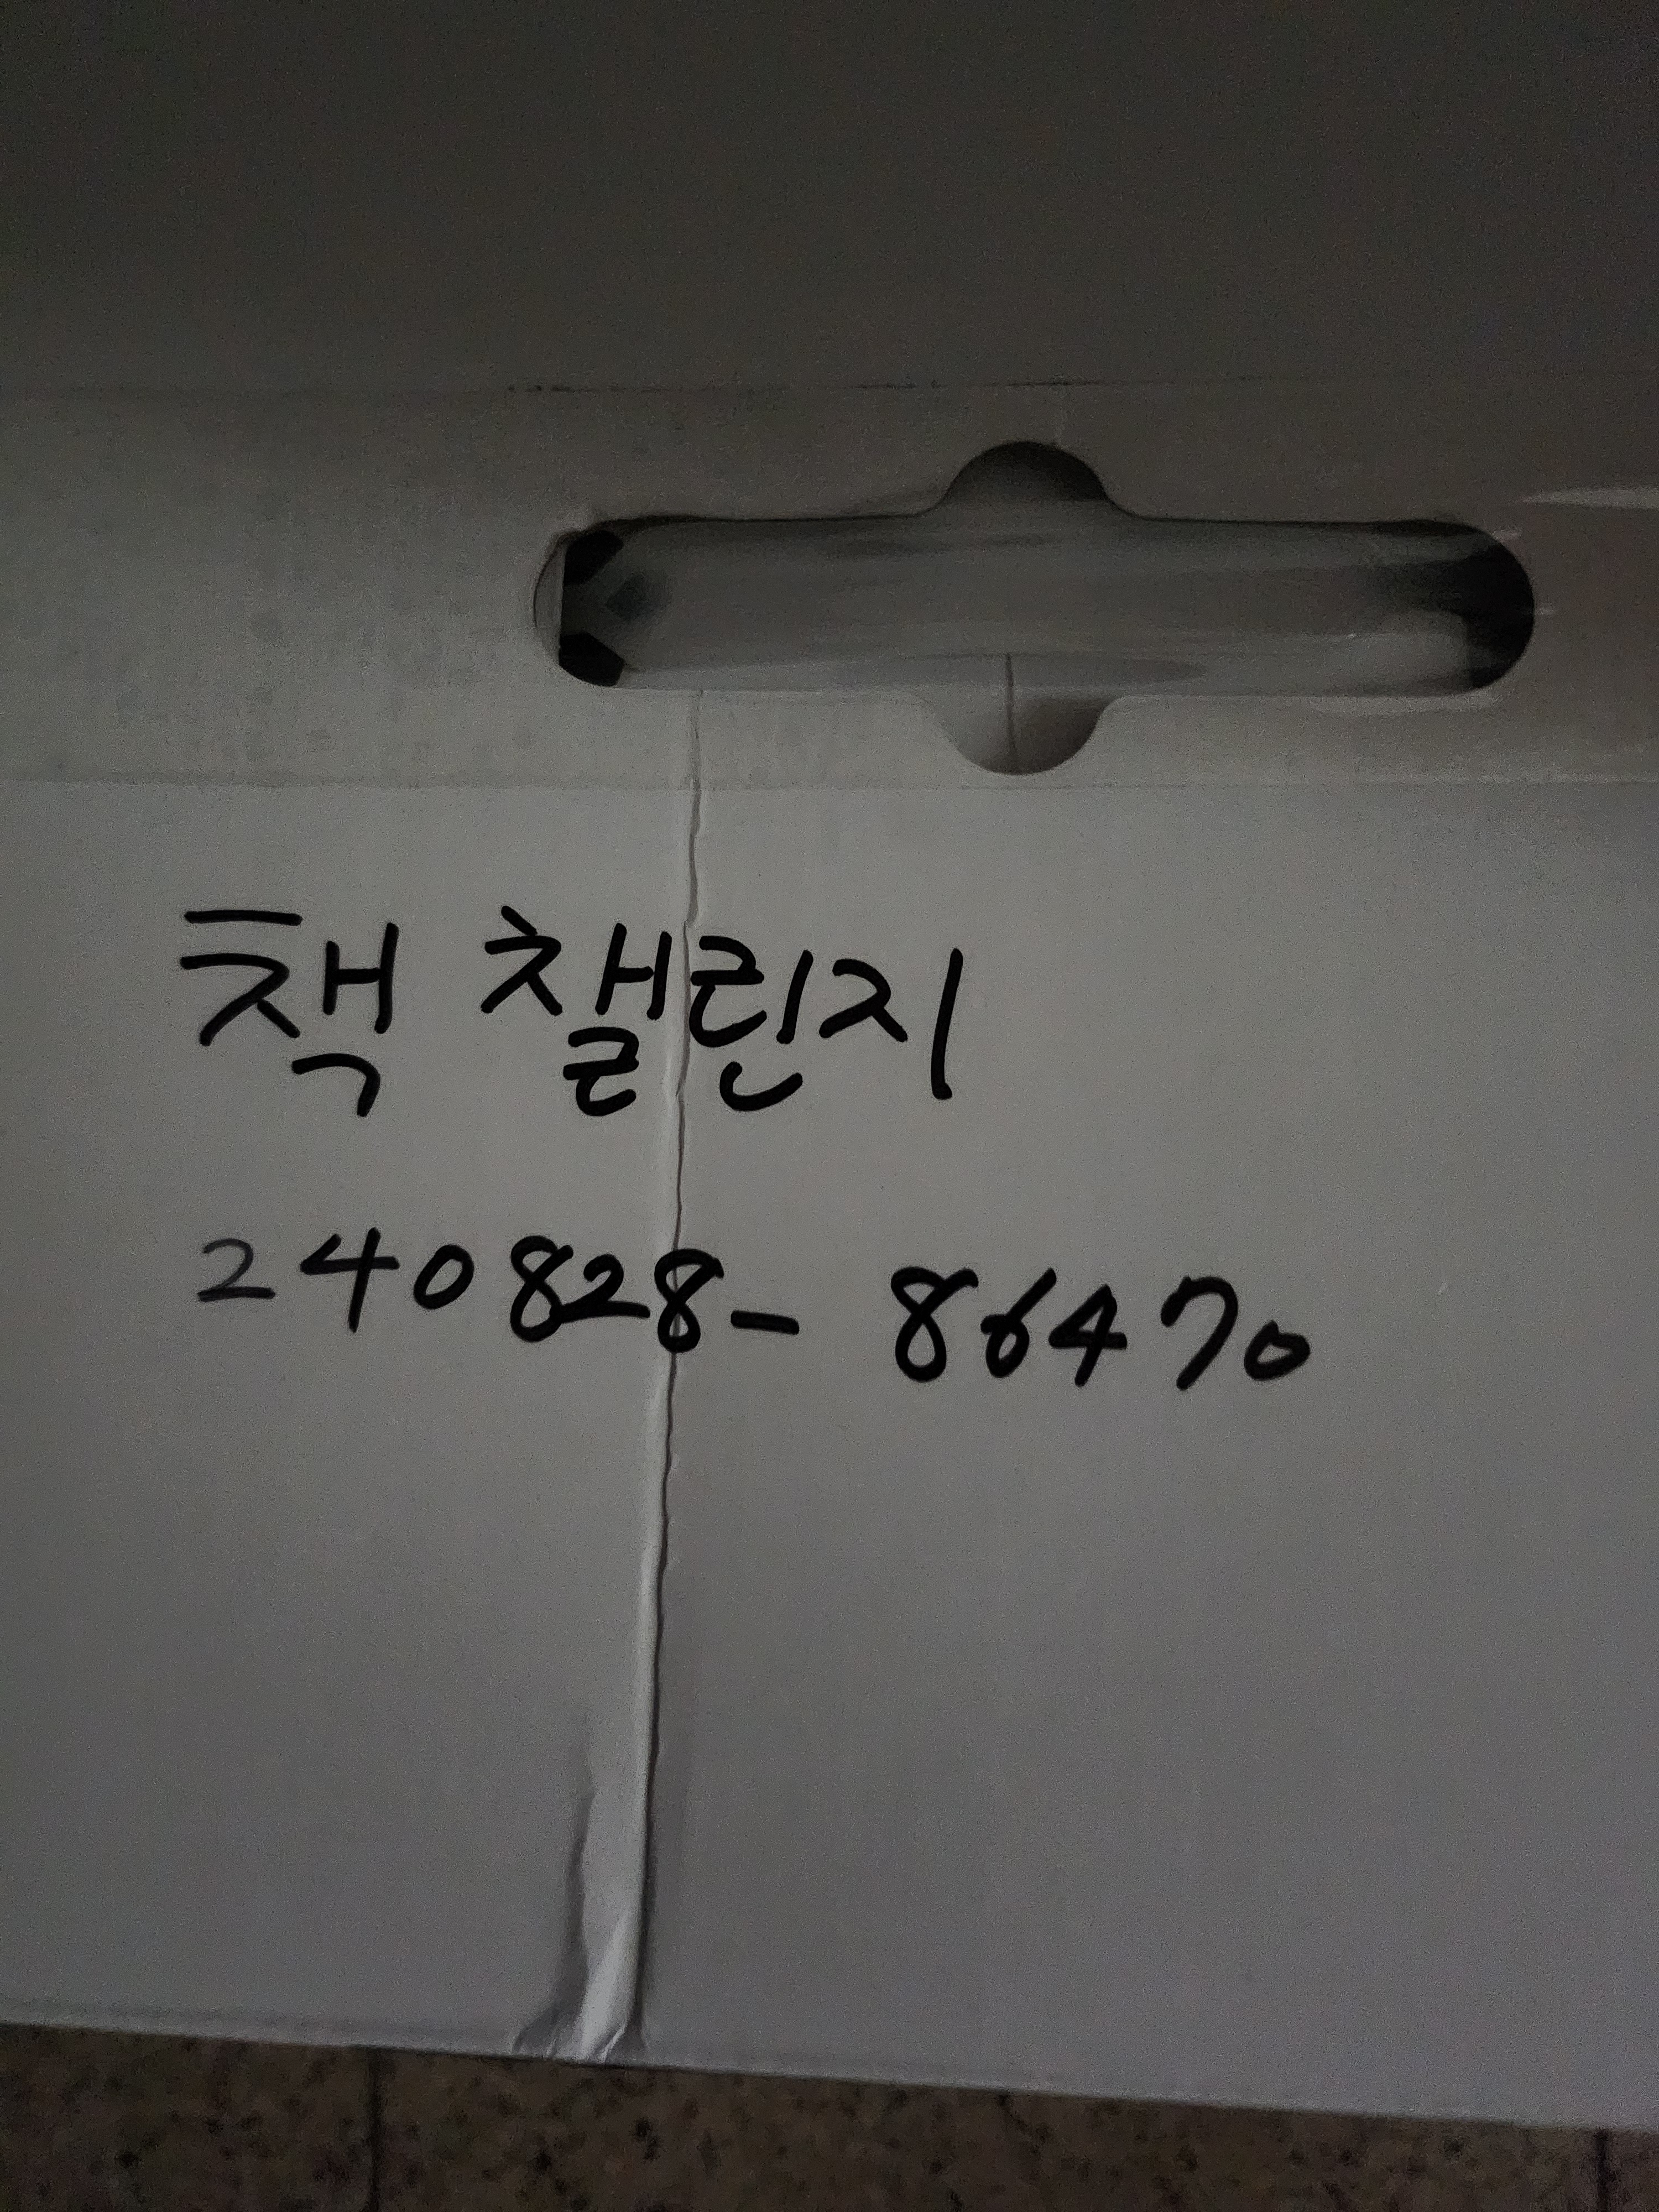 책 챌린지
240828- 86470